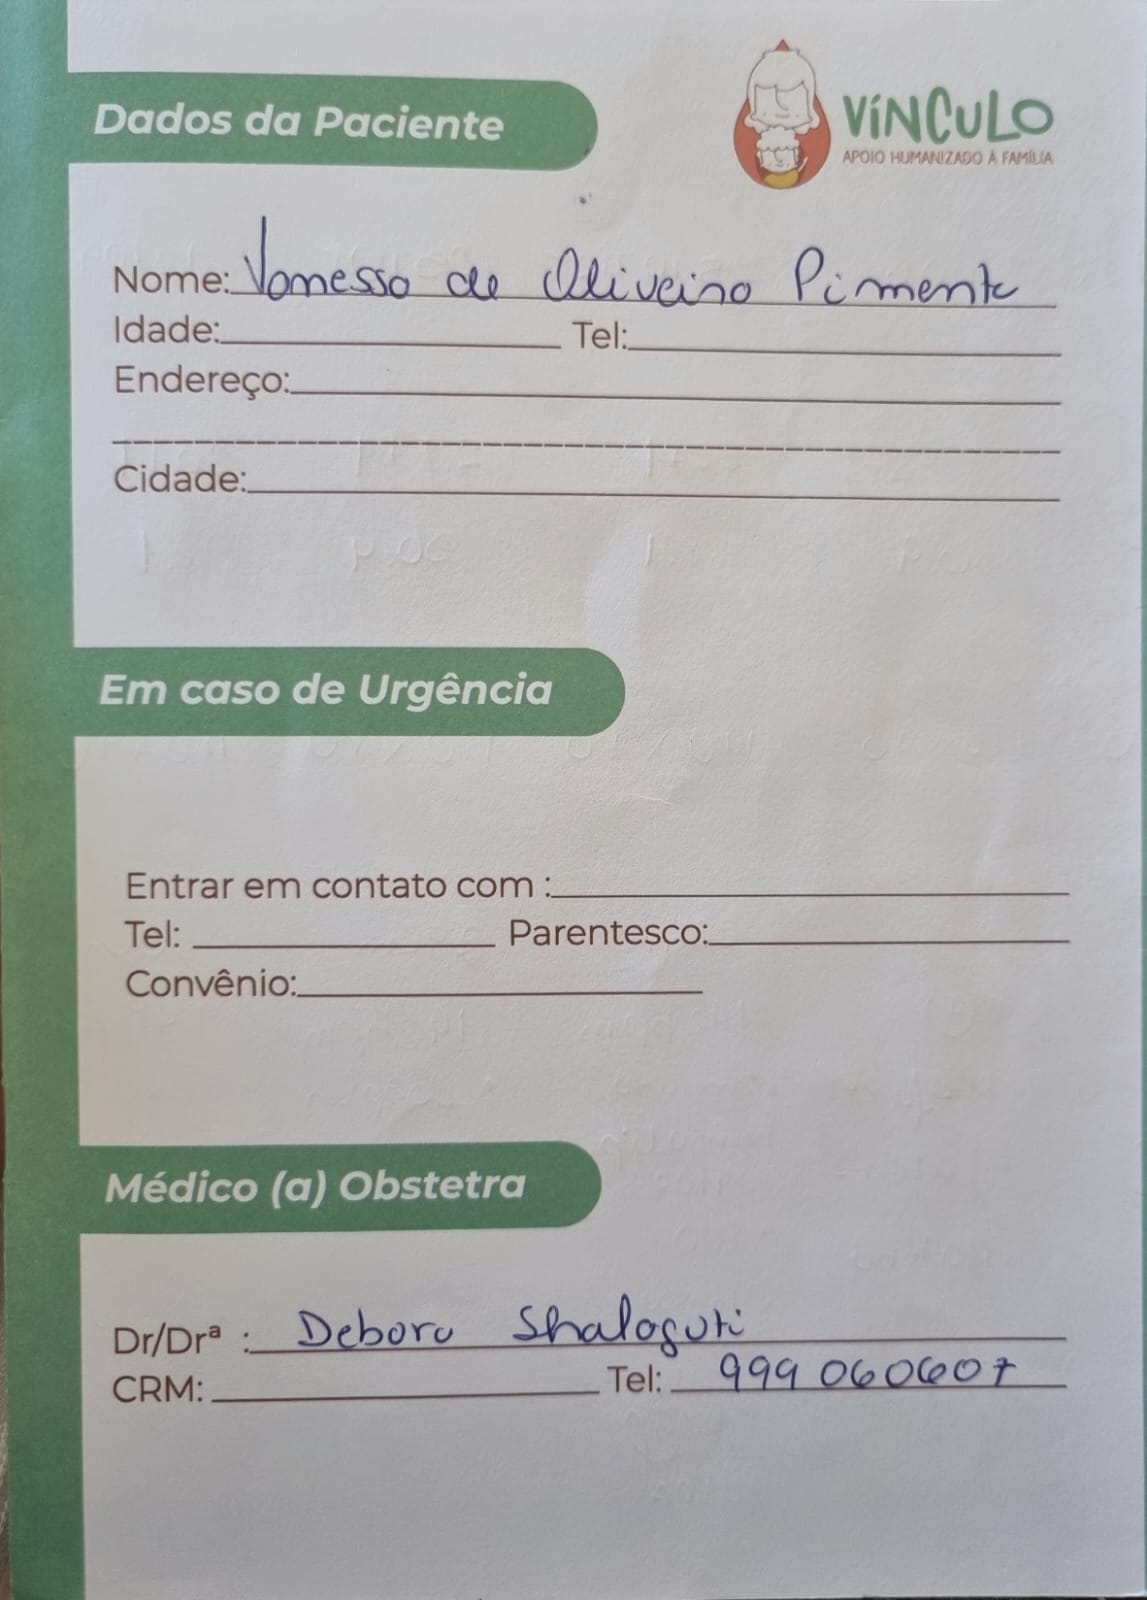 Dados da Paciente
VÍNCULO
APOIO HUMANIZADO À FAMÍLIA
Nome: Vanessa de Oliveira Pimenta
Idade: Tel:
Endereço:
Cidade:
Em caso de Urgência
Entrar em contato com :
Tel: Parentesco:
Convênio:
Médico (a) Obstetra
Dr/Drª : Debora
CRM: Tel: 999 060607